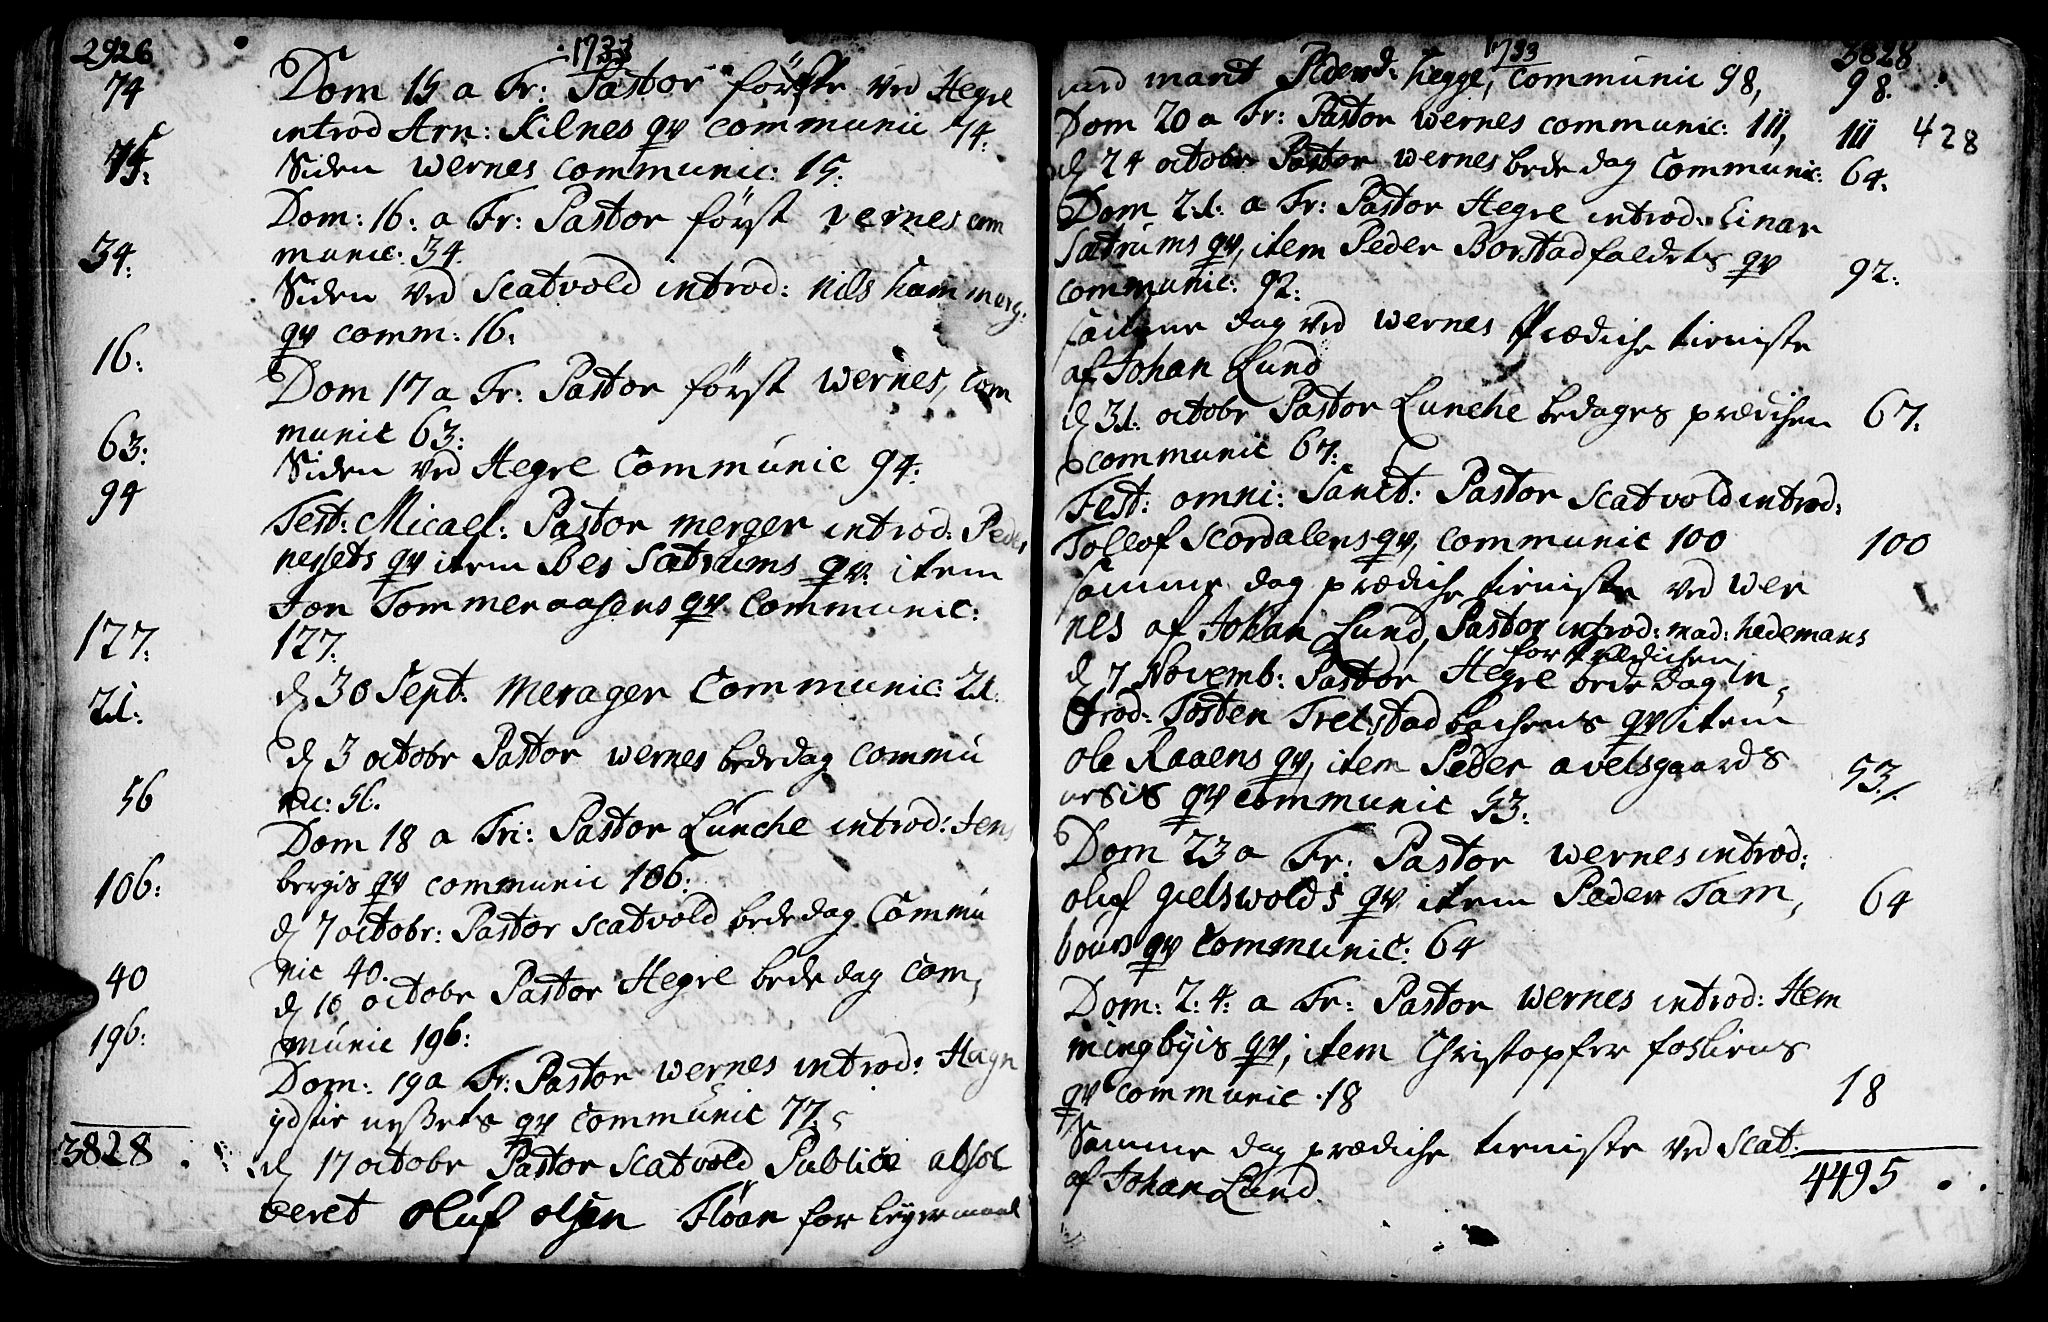 2926
1733
74 Dom 15 a Tr: Pastor förste ved Hegre
introd Arn: Kilnes qv communic 74.
15. Siden wernes communic: 15.
Dom: 16: a Tr: Pastor först vernes com
34. munic: 34.
Siden ved Scatvold introd: nils hammerg:
16: qv comm: 16:
Dom 17 a Tr: Pastor först wernes, com
63: munic 63:
94 Siden ved Hegre Communic 94.
Fest: Micael: Pastor merger introd: Peder
nessets qv item Bes Sætrums qv. item
Jon Tommeraasens qv. Communic:
127: 127:
21: d 30 Sept. Merager Communic: 21.
d 3 octobr Pastor wernes bededag commu
56 nic: 56.
Dom 18 a Tri: Pastor Lunche introd: Jens
106: bergis qv communic 106:
d 7 octobr: Pastor Scatvold bededag Commu
40 nic 40.
d 10 octobr Pastor Hegre bededag com,
196: munic 196:
Dom: 19 a Tr: Pastor wernes introd: Hagn
ydstie nessets qv communic 77.
3828 d 17 octobr Pastor Scatvold Publice absol
veret Oluf olsen Flöan for leyermaal
1733
3828
med marit Pedersd: hegge, communic 98, 98.
Dom 20 a Tr: Pastor wernes communic: 111, 111 428
d 24 octobr Pastor wernes bededag Communic: 64.
Dom 21: a Tr: Pastor Hegre introd: Einar
Sætrums qv, item Peder Borstadfaldets qv
communic: 92: 92:
samme dag ved wernes Prædiche tieniste
af Johan Lund
d 31: octobr Pastor Lunche bedages prædichen 67.
communic 67:
Fest: omni: Sanct: Pastor Scatvold introd:
Tollof Scordalens qv, communic 100 100
samme dag prædiche tieniste ved wer
nes af Johan Lund, Pastor introd: mad: hedemans
for Prædichen,
d 7 Novemb: Pastor Hegre bededag in,
trod: Tosten Trelstad bachens qv item
ole Raaens qv, item Peder avelsgaards
qv communic 53. 53./.
Dom 23 a Tr: Pastor wernes introd:
oluf gielswolds qv item Peder Tam, 64
bours qv communic: 64
Dom: 2:4: a Tr: Pastor wernes introd: Hem
mingbyis qv, item Christopfer fosliens
qv communic .18 18
Samme dag prædiche tieniste ved Scat:
af Johan Lund. 4495